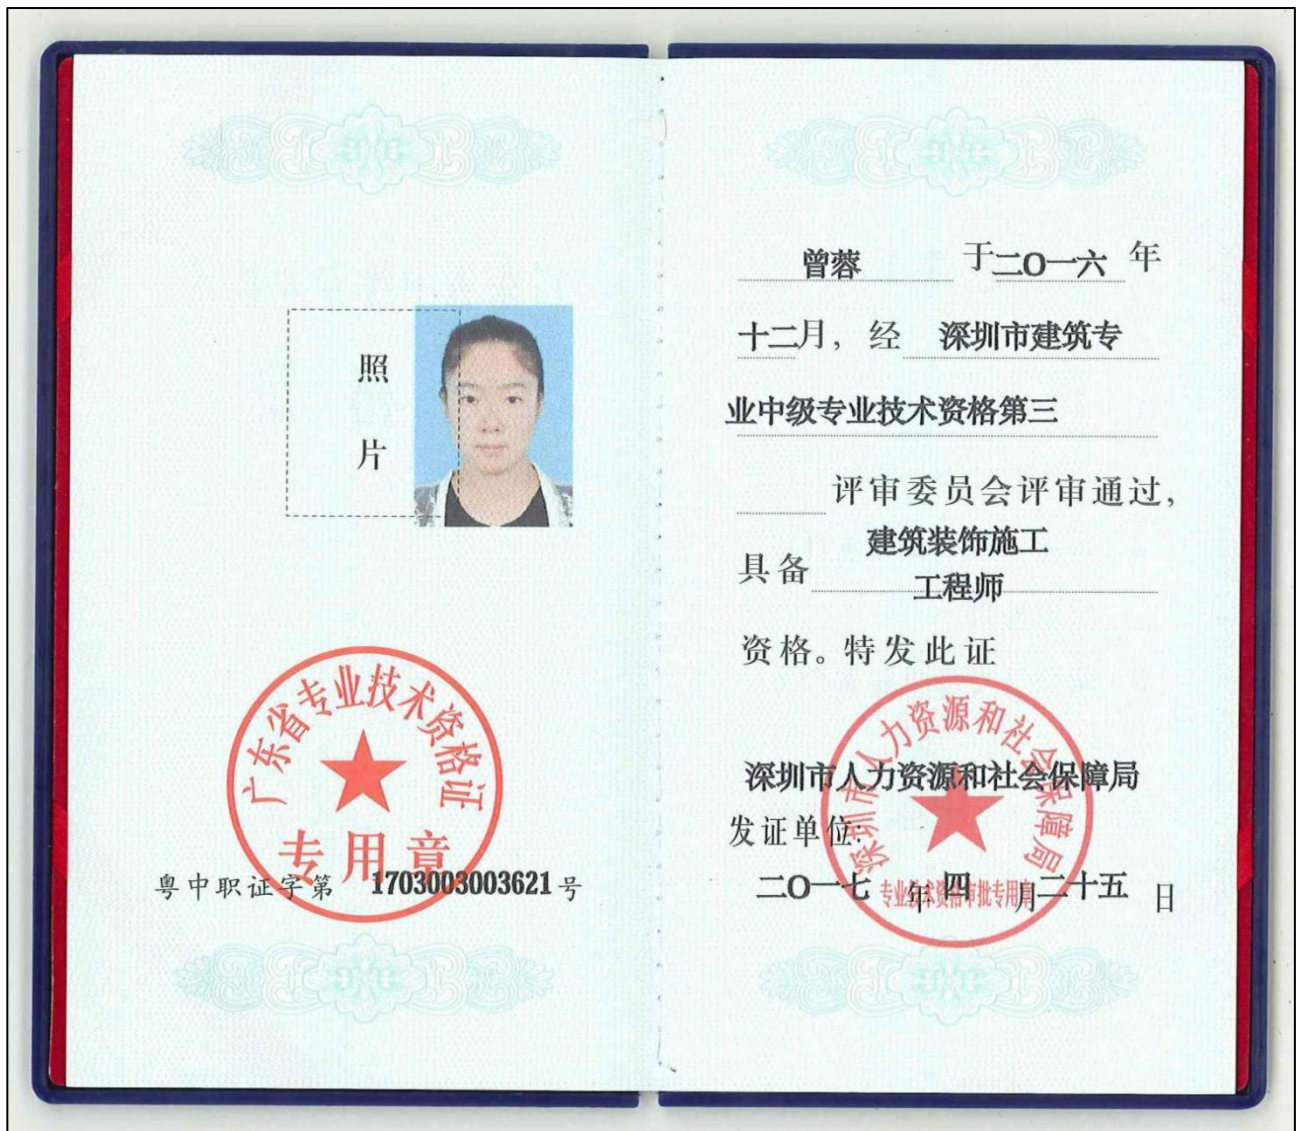 照
片
广东省专业技术资格证
专用章
粤中职证字第 1703003003621 号
曾蓉 于二〇一六 年
十二月，经 深圳市建筑专
业中级专业技术资格第三
评审委员会评审通过，
具备 建筑装饰施工
工程师
资格。特发此证
深圳市人力资源和社会保障局
深圳市人力资源和社会保障局
发证单位：
专业技术资格审批专用章
二〇一七 年 四 月 二十五 日